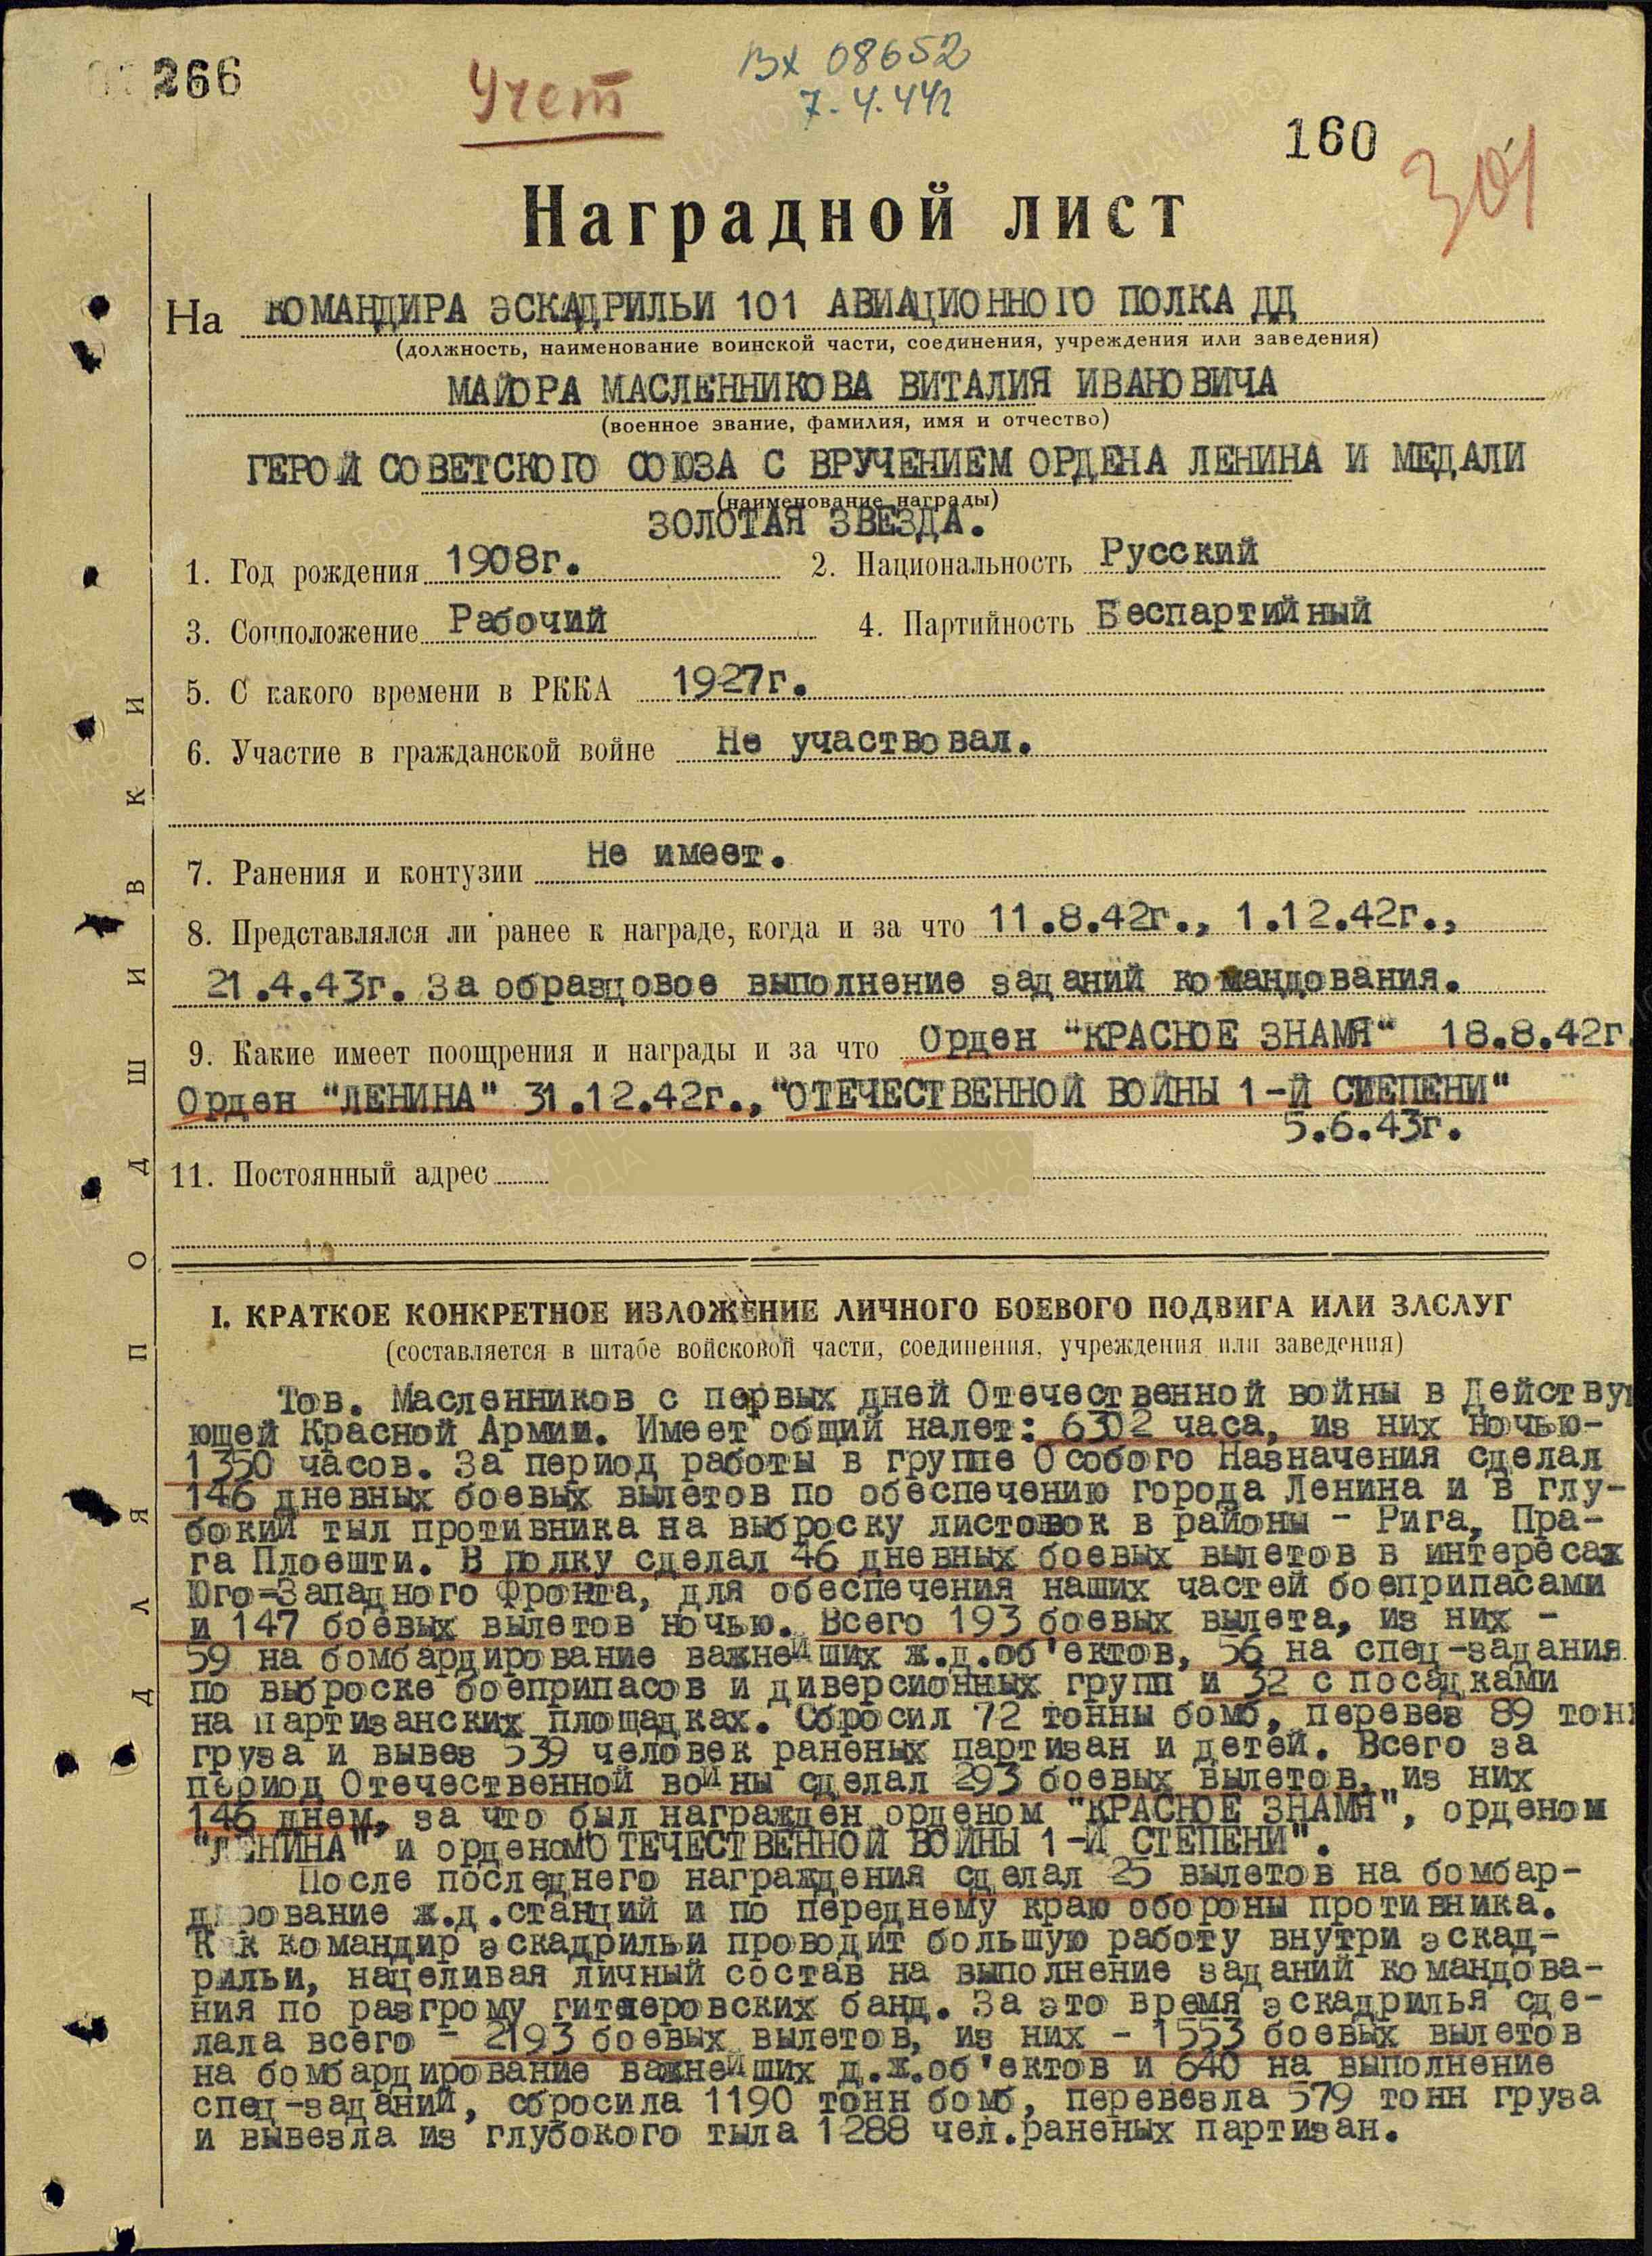 266
Учет
Вх 08652
7.4.44г
160
301
Наградной лист
На КОМАНДИРА ЭСКАДРИЛЬИ 101 АВИАЦИОННОГО ПОЛКА ДД
(должность, наименование воинской части, соединения, учреждения или заведения)
МАЙОРА МАСЛЕННИКОВА ВИТАЛИЯ ИВАНОВИЧА
(военное звание, фамилия, имя и отчество)
ГЕРОЙ СОВЕТСКОГО СОЮЗА С ВРУЧЕНИЕМ ОРДЕНА ЛЕНИНА И МЕДАЛИ
(наименование награды)
ЗОЛОТАЯ ЗВЕЗДА.
1. Год рождения 1908г. 2. Национальность Русский
3. Соцположение Рабочий 4. Партийность Беспартийный
5. С какого времени в РККА 1927г.
6. Участие в гражданской войне Не участвовал.
7. Ранения и контузии Не имеет.
8. Представлялся ли ранее к награде, когда и за что 11.8.42г., 1.12.42г.,
21.4.43г. За образцовое выполнение заданий командования.
9. Какие имеет поощрения и награды и за что Орден "КРАСНОЕ ЗНАМЯ" 18.8.42г.
Орден "ЛЕНИНА" 31.12.42г., "ОТЕЧЕСТВЕННОЙ ВОЙНЫ 1-Й СТЕПЕНИ"
5.6.43г.
11. Постоянный адрес
I. КРАТКОЕ КОНКРЕТНОЕ ИЗЛОЖЕНИЕ ЛИЧНОГО БОЕВОГО ПОДВИГА ИЛИ ЗАСЛУГ
(составляется в штабе войсковой части, соединения, учреждения или заведения)
Тов. Масленников с первых дней Отечественной войны в Действу
ющей Красной Армии. Имеет общий налет: 6302 часа, из них ночью-
1350 часов. За период работы в группе Особого Назначения сделал
146 дневных боевых вылетов по обеспечению города Ленина и в глу-
бокий тыл противника на выброску листовок в районы - Рига, Пра-
га Плоешти. В полку сделал 46 дневных боевых вылетов в интересах
Юго-Западного Фронта, для обеспечения наших частей боеприпасами
и 147 боевых вылетов ночью. Всего 193 боевых вылета, из них -
59 на бомбардирование важнейших ж.д.об'ектов, 56 на спец-задания
по выброске боеприпасов и диверсионных групп и 32 с посадками
на партизанских площадках. Сбросил 72 тонны бомб, перевез 89 тонн
груза и вывез 539 человек раненых партизан и детей. Всего за
период Отечественной войны сделал 293 боевых вылетов, из них
146 днем, за что был награжден орденом "КРАСНОЕ ЗНАМЯ", орденом
"ЛЕНИНА" и орденом ОТЕЧЕСТВЕННОЙ ВОЙНЫ 1-Й СТЕПЕНИ".
После последнего награждения сделал 25 вылетов на бомбар-
дирование ж.д.станций и по переднему краю обороны противника.
Как командир эскадрильи проводит большую работу внутри эскад-
рильи, нацеливая личный состав на выполнение заданий командова-
ния по разгрому гитлеровских банд. За это время эскадрилья сде-
лала всего - 2193 боевых вылетов, из них - 1553 боевых вылетов
на бомбардирование важнейших д.ж.об'ектов и 640 на выполнение
спец-заданий, сбросила 1190 тонн бомб, перевезла 579 тонн груза
и вывезла из глубокого тыла 1288 чел.раненых партизан.
ДЛЯ ПОДШИВКИ